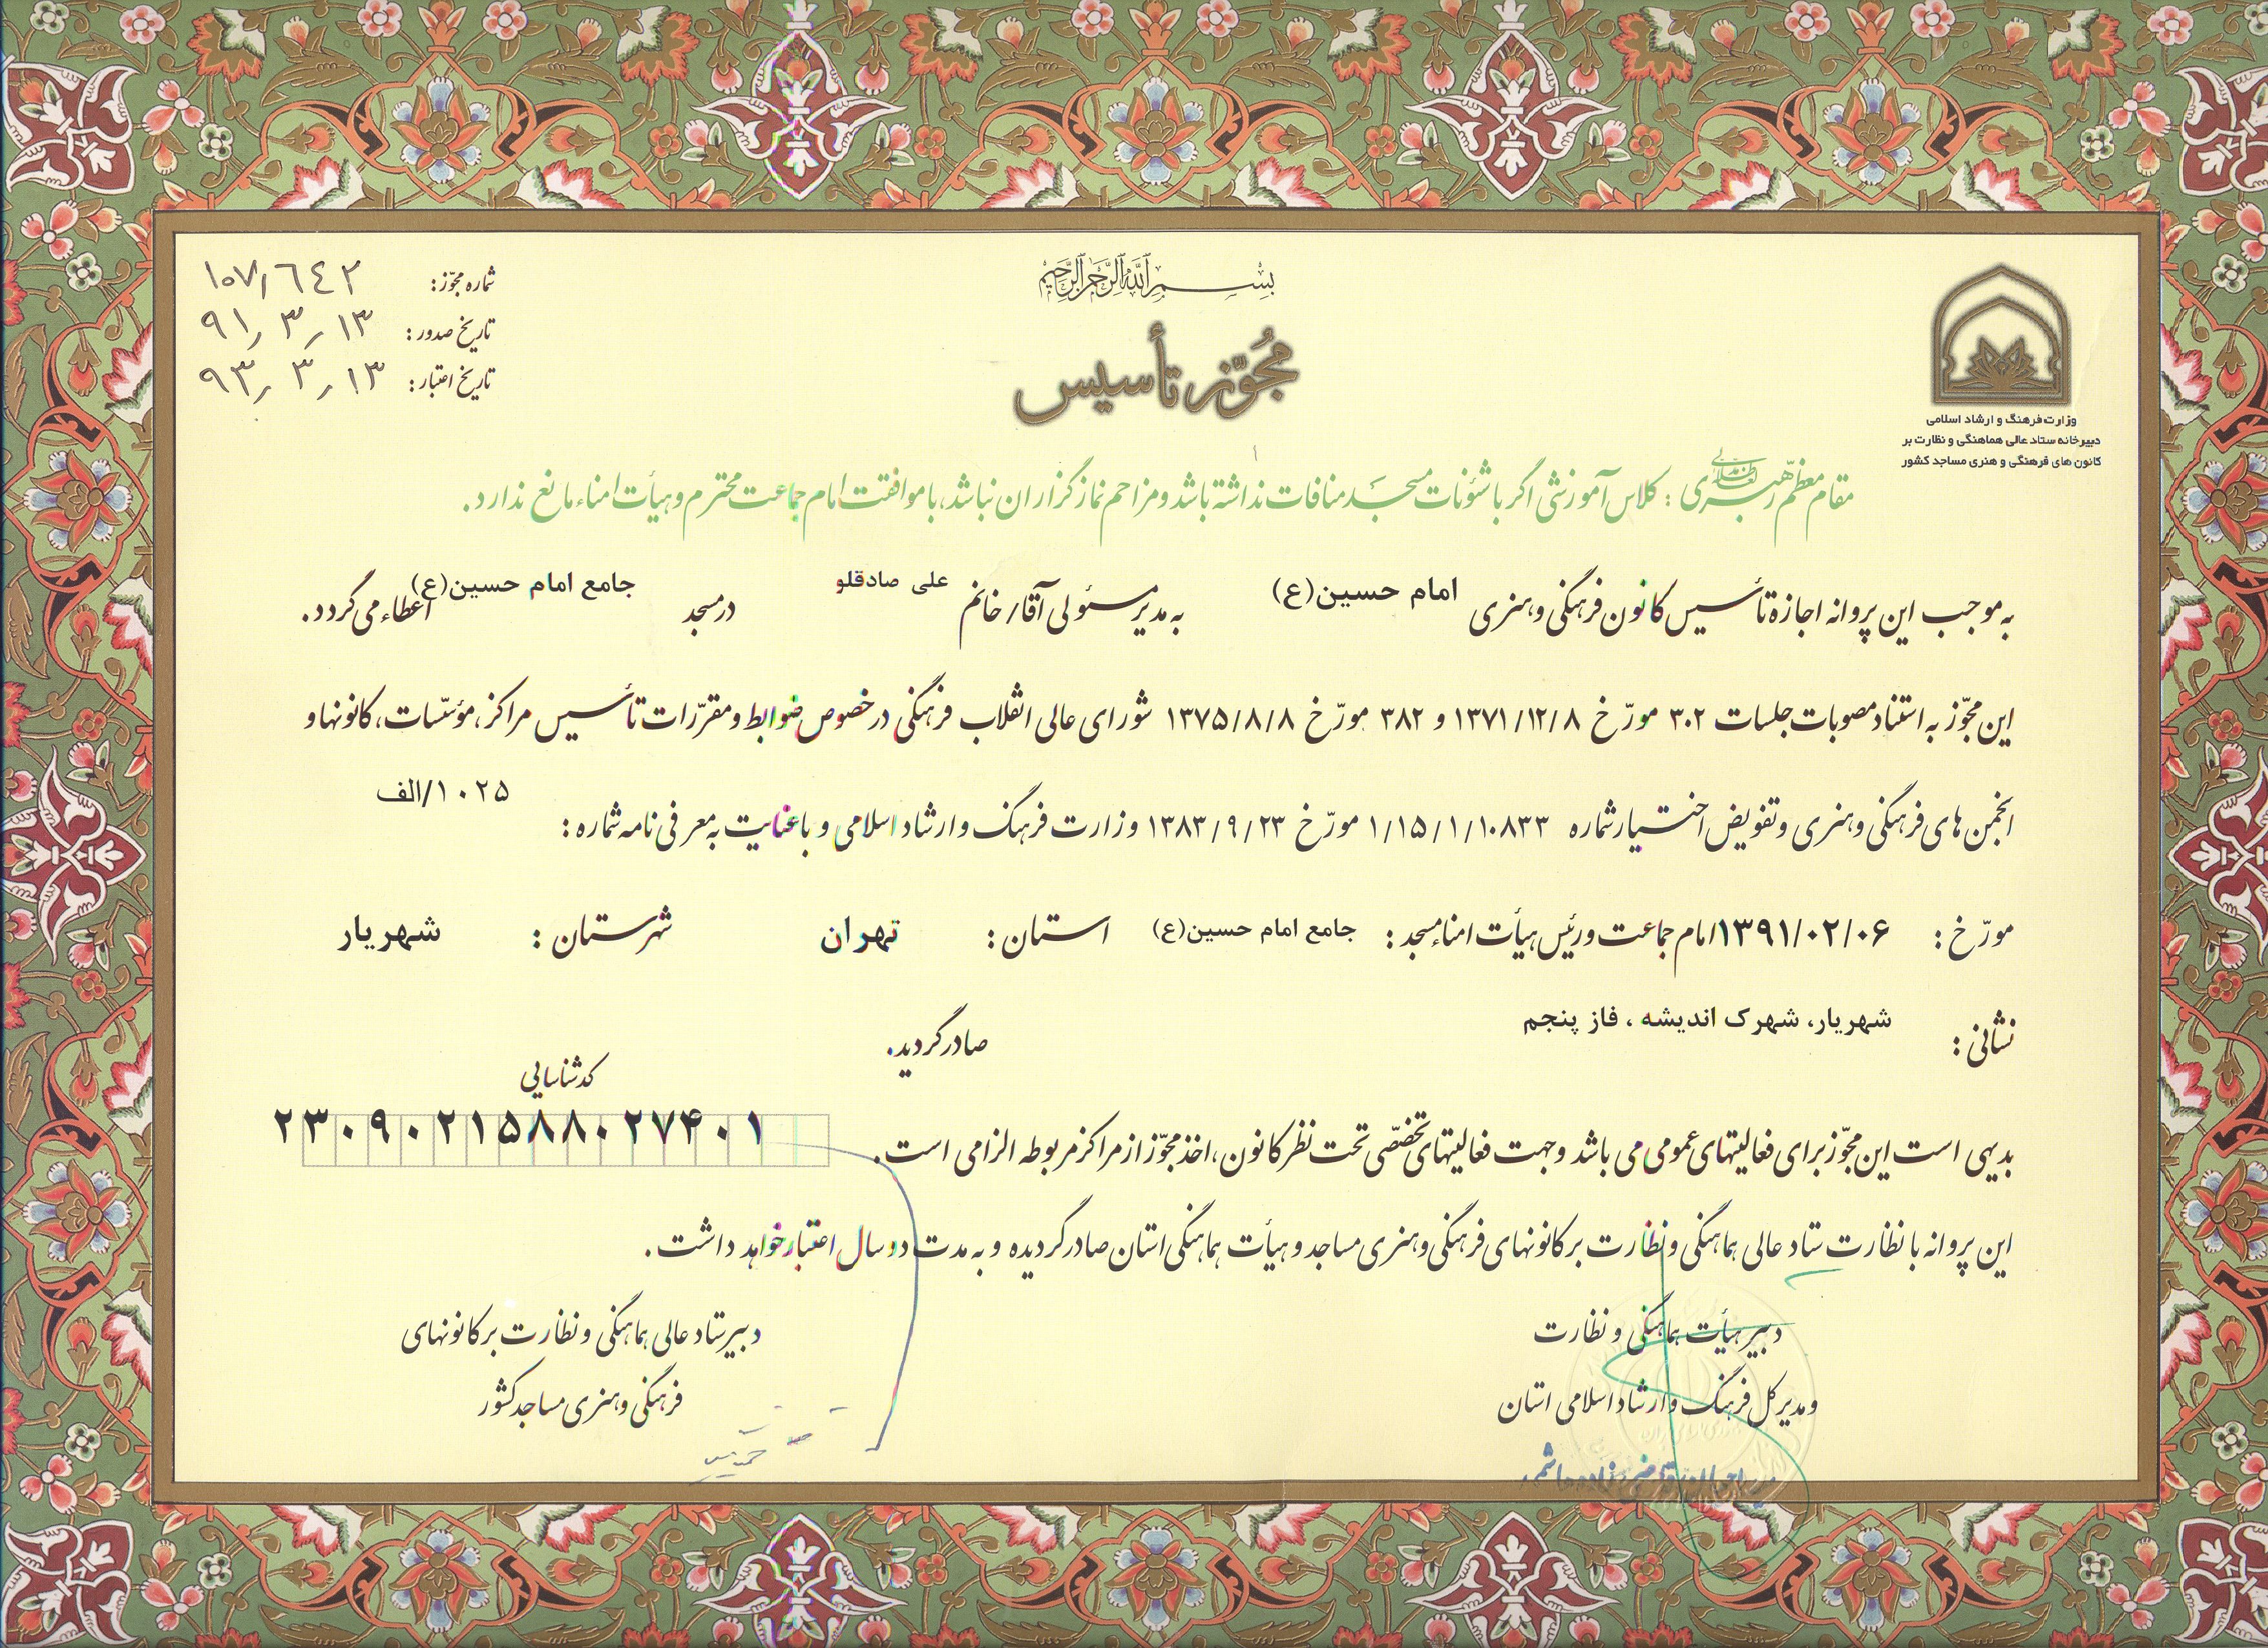 بسم الله الرحمن الرحیم
مجوّز تأسیس
شماره مجوّز: ۱۰۷٫٦٤۲
تاریخ صدور: ۹۱٫۳٫۱۳
تاریخ اعتبار: ۹۳٫۳٫۱۳
وزارت فرهنگ و ارشاد اسلامی
دبیرخانه ستاد عالی هماهنگی و نظارت بر
کانون های فرهنگی و هنری مساجد کشور
مقام معظّم رهبری : کلاس آموزشی اگر با شئونات مسجد منافات نداشته باشد و مزاحم نمازگزاران نباشد، با موافقت امام جماعت محترم و هیأت امناء مانع ندارد.
به موجب این پروانه اجازه تأسیس کانون فرهنگی و هنری امام حسین(ع) به مدیر مسئولی آقا/خانم علی صادقلو در مسجد جامع امام حسین(ع) اعطاء می گردد.
این مجوّز به استناد مصوبات جلسات ۳۰۲ مورّخ ۱۳۷۱/۱۲/۸ و ۳۸۲ مورّخ ۱۳۷۵/۸/۸ شورای عالی انقلاب فرهنگی در خصوص ضوابط و مقرّرات تأسیس مراکز، مؤسّسات، کانونها و
انجمن های فرهنگی و هنری و تفویض اختیار شماره ۱/۱۵/۱/۱۰۸۳۳ مورّخ ۱۳۸۳/۹/۲۳ وزارت فرهنگ و ارشاد اسلامی و با عنایت به معرفی نامه شماره : ۱۰۲۵/الف
مورّخ : ۱۳۹۱/۰۲/۰۶ امام جماعت و رئیس هیأت امناء مسجد : جامع امام حسین(ع) استان : تهران شهرستان : شهریار
نشانی : شهریار، شهرک اندیشه ، فاز پنجم صادر گردید.
کد شناسایی
۲۳۰۹۰۲۱۵۸۸۰۲۷۴۰۱
بدیهی است این مجوّز برای فعالیتهای عمومی می باشد و جهت فعالیتهای تخصّصی تحت نظر کانون، اخذ مجوّز از مراکز مربوطه الزامی است.
این پروانه با نظارت ستاد عالی هماهنگی و نظارت بر کانونهای فرهنگی و هنری مساجد و هیأت هماهنگی استان صادر گردیده و به مدت دو سال اعتبار خواهد داشت.
دبیر هیأت هماهنگی و نظارت
و مدیر کل فرهنگ و ارشاد اسلامی استان
دبیر ستاد عالی هماهنگی و نظارت بر کانونهای
فرهنگی و هنری مساجد کشور